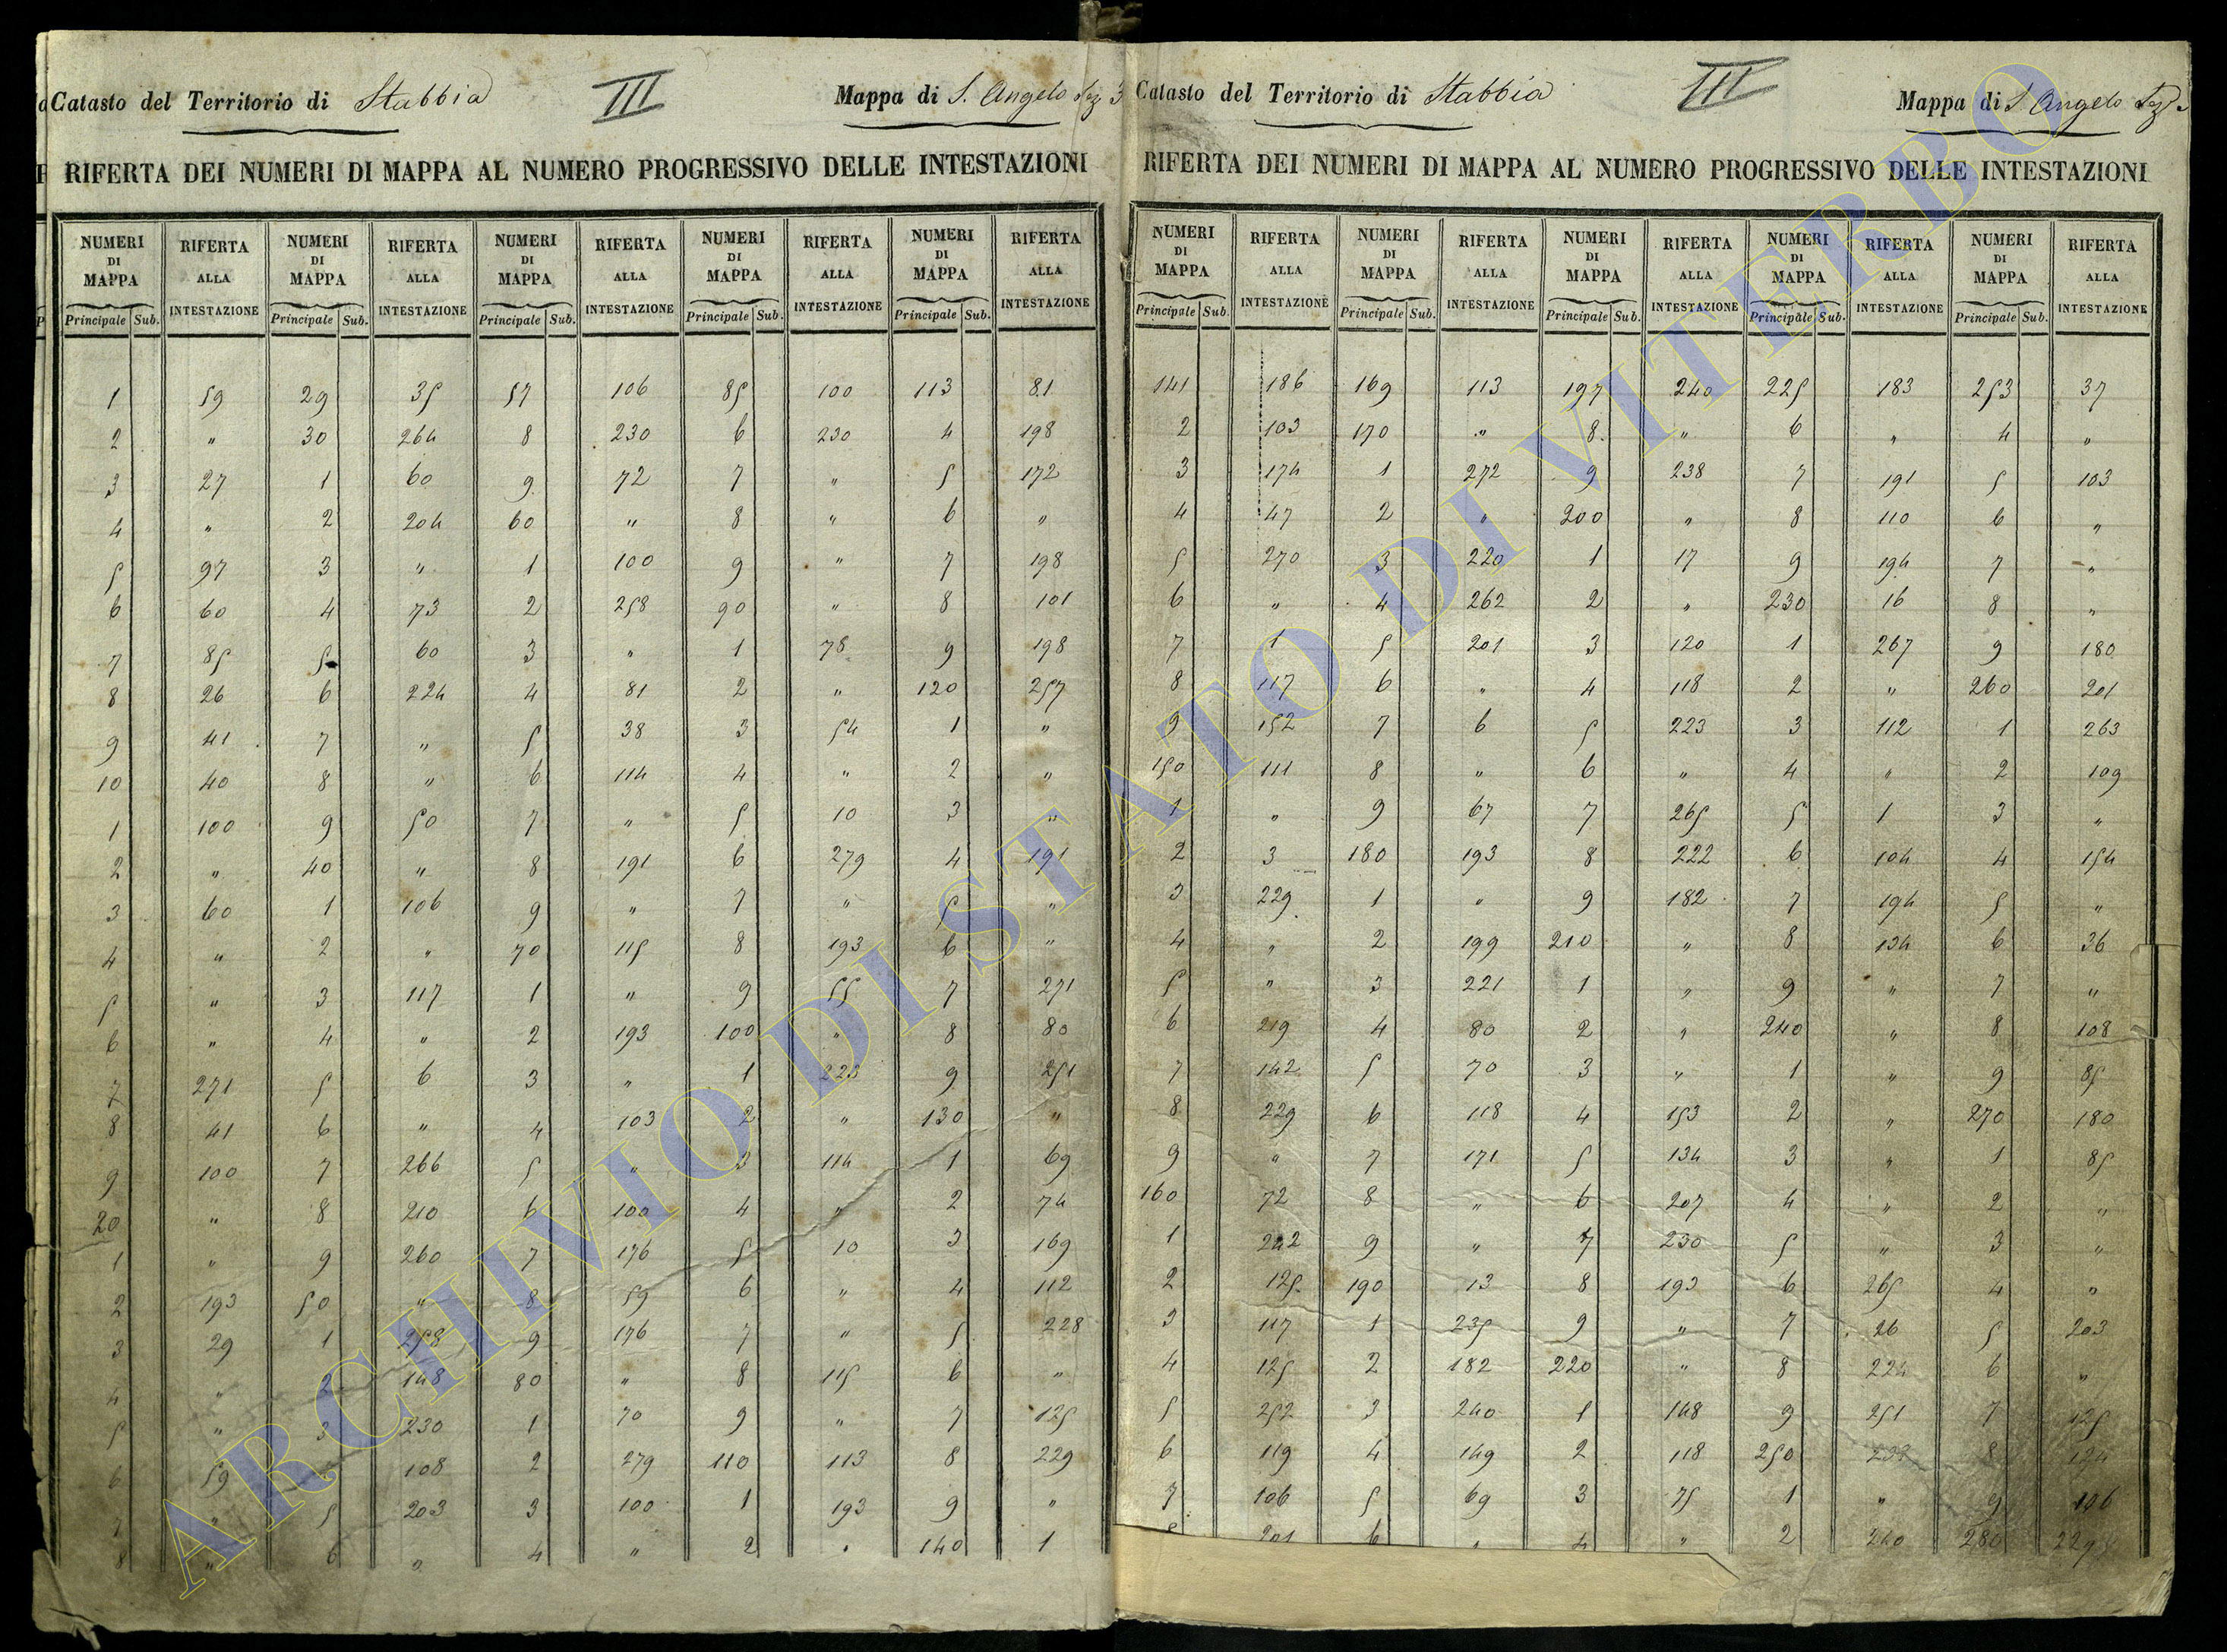 Catasto del Territorio di Stabbia III Mappa di S. Angelo Sez 3
RIFERTA DEI NUMERI DI MAPPA AL NUMERO PROGRESSIVO DELLE INTESTAZIONI
NUMERI DI MAPPA RIFERTA ALLA INTESTAZIONE NUMERI DI MAPPA RIFERTA ALLA INTESTAZIONE NUMERI DI MAPPA RIFERTA ALLA INTESTAZIONE NUMERI DI MAPPA RIFERTA ALLA INTESTAZIONE NUMERI DI MAPPA RIFERTA ALLA INTESTAZIONE
Principale Sub. Principale Sub. Principale Sub. Principale Sub. Principale Sub.
1 59 29 35 57 106 85 100 113 81
2 " 30 264 8 230 6 230 4 198
3 27 1 60 9 72 7 " 5 172
4 " 2 204 60 " 8 " 6 "
5 97 3 " 1 100 9 " 7 198
6 60 4 73 2 258 90 " 8 101
7 85 5 60 3 " 1 78 9 198
8 26 6 224 4 81 2 " 120 257
9 41 7 " 5 38 3 54 1 "
10 40 8 " 6 114 4 " 2 "
1 100 9 50 7 " 5 10 3 "
2 " 40 " 8 191 6 279 4 191
3 60 1 106 9 " 7 " 5 "
4 " 2 " 70 115 8 193 6 "
5 " 3 117 1 " 9 55 7 271
6 " 4 " 2 193 100 " 8 80
7 271 5 6 3 " 1 223 9 251
8 41 6 " 4 103 2 " 130 "
9 100 7 266 5 " 3 114 1 69
20 " 8 210 6 100 4 " 2 74
1 " 9 260 7 176 5 10 3 169
2 193 50 " 8 59 6 " 4 112
3 29 1 258 9 176 7 " 5 228
4 " 2 148 80 " 8 115 6 "
5 " 3 230 1 70 9 " 7 125
6 59 108 2 279 110 113 8 229
7 " 5 203 3 100 1 193 9 "
8 " 6 " 4 " 2 " 140 1
Catasto del Territorio di Stabbia III Mappa di S. Angelo Sez
RIFERTA DEI NUMERI DI MAPPA AL NUMERO PROGRESSIVO DELLE INTESTAZIONI
NUMERI DI MAPPA RIFERTA ALLA INTESTAZIONE NUMERI DI MAPPA RIFERTA ALLA INTESTAZIONE NUMERI DI MAPPA RIFERTA ALLA INTESTAZIONE NUMERI DI MAPPA RIFERTA ALLA INTESTAZIONE NUMERI DI MAPPA RIFERTA ALLA INTESTAZIONE
Principale Sub. Principale Sub. Principale Sub. Principale Sub. Principale Sub.
141 186 169 113 197 240 225 183 253 37
2 103 170 " 8 " 6 " 4 "
3 174 1 272 9 238 7 191 5 103
4 47 2 " 200 " 8 110 6 "
5 270 3 220 1 17 9 194 7 "
6 " 4 262 2 " 230 16 8 "
7 1 5 201 3 120 1 267 9 180
8 117 6 " 4 118 2 " 260 201
9 152 7 6 5 223 3 112 1 263
150 111 8 " 6 " 4 " 2 109
1 " 9 67 7 265 5 1 3 "
2 3 180 193 8 222 6 104 4 154
3 229 1 " 9 182 7 194 5 "
4 " 2 199 210 " 8 134 6 36
5 " 3 221 1 " 9 " 7 "
6 219 4 80 2 " 240 " 8 108
7 142 5 70 3 " 1 " 9 85
8 229 6 118 4 153 2 " 270 180
9 " 7 171 5 134 3 " 1 85
160 72 8 " 6 207 4 " 2 "
1 242 9 " 7 230 5 " 3 "
2 125 190 13 8 193 6 265 4 "
3 117 1 235 9 " 7 26 5 203
4 125 2 182 220 " 8 224 6 "
5 252 3 240 1 148 9 251 7 125
6 119 4 149 2 118 250 8 124
7 106 5 69 3 75 1 " 9 106
201 6 " 4 " 2 240 280 229
ARCHIVIO DI STATO DI VITERBO